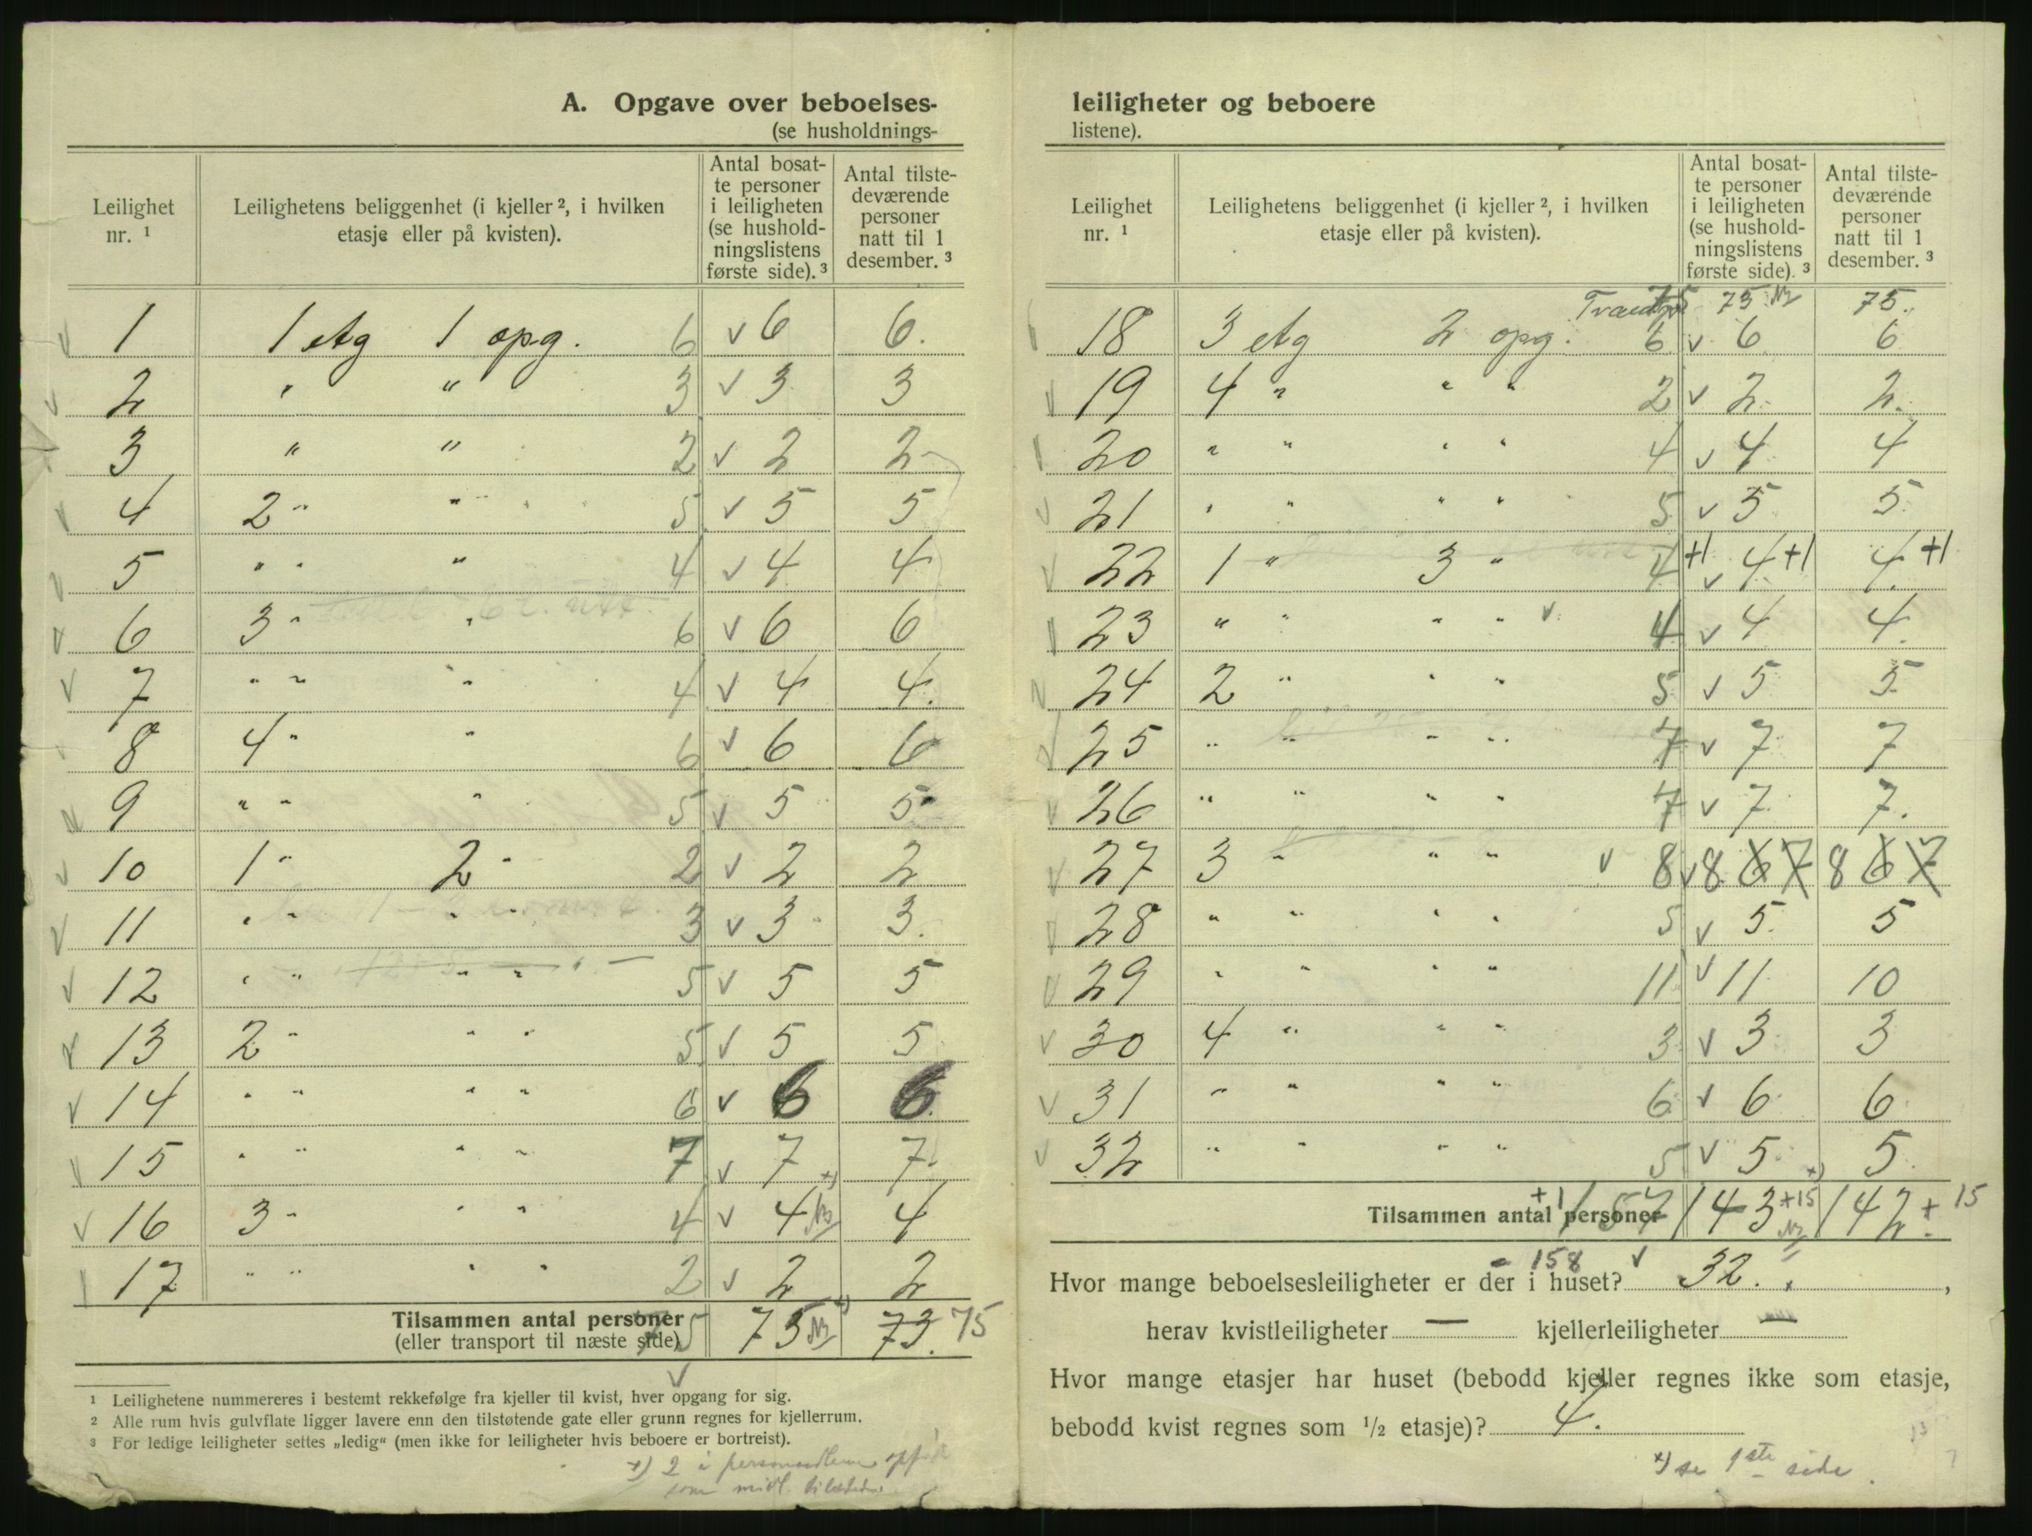 A. Opgave over beboelses-
(se husholdnings-
Leilighet nr. ¹
Leilighetens beliggenhet (i kjeller ², i hvilken etasje eller på kvisten).
Antal bosatte personer i leiligheten (se husholdningslistens første side). ³
Antal tilstedeværende personer natt til 1 desember. ³
1 1 etg 1 opg. 6 v 6 6.
2 " " 3 v 3 3
3 " " 2 v 2 2
4 2 " " 5 v 5 5
5 " " " 4 v 4 4
6 3 " " 6 v 6 6
7 " " " 4 v 4 4.
8 4 " " 6 v 6 6
9 " " " 5 v 5 5
10 1 " 2 " 2 v 2 2
11 " " " " 3 v 3 3.
12 " " " " 5 v 5 5
13 2 " " " 5 v 5 5
14 " " " " 6 v 6 6.
15 " " " " 7 v 7 7.
16 3 " " " 4 v 4 4
17 " " " " 2 v 2 2
Tilsammen antal personer
(eller transport til næste side) 75 75 73. 75
¹ Leilighetene nummereres i bestemt rekkefølge fra kjeller til kvist, hver opgang for sig.
² Alle rum hvis gulvflate ligger lavere enn den tilstøtende gate eller grunn regnes for kjellerrum.
³ For ledige leiligheter settes „ledig" (men ikke for leiligheter hvis beboere er bortreist).
x) 2 i
som midl.
leiligheter og beboere
listene).
Leilighet nr. ¹
Leilighetens beliggenhet (i kjeller ², i hvilken etasje eller på kvisten).
Antal bosatte personer i leiligheten (se husholdningslistens første side). ³
Antal tilstedeværende personer natt til 1 desember. ³
75 75 75.
18 3 etg 2 opg. 6 v 6 6
19 4 " " " 2 v 2 2.
20 " " " " 4 v 4 4
21 " " " " 5 v 5 5.
22 1 " 3 " 4 +1 v 4 +1 4. +1
23 " " " " v 4 v 4 4.
24 2 " " " 5 v 5 5
25 " " " " 7 v 7 7
26 " " " " 7 v 7 7.
27 3 " " " v 8 v 8 6 7 8 6 7
28 " " " " 5 v 5. 5
29 " " " " 11 v 11 10
30 4 " " " 3 v 3 3
31 " " " " 6 v 6 6
32 " " " " 5 v 5 5.
Tilsammen antal personer +1 157 143 +15 142 + 15
158 v
Hvor mange beboelsesleiligheter er der i huset? 32. ,
herav kvistleiligheter — kjellerleiligheter —
Hvor mange etasjer har huset (bebodd kjeller regnes ikke som etasje,
bebodd kvist regnes som ½ etasje)? 4.
x) se 1ste side.